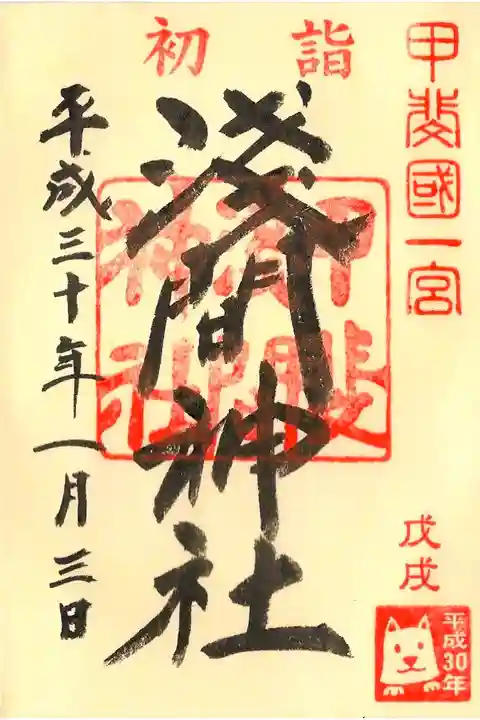 甲斐國一宮
初詣
淺間神社
平成三十年一月三日
戊戌
平成30年